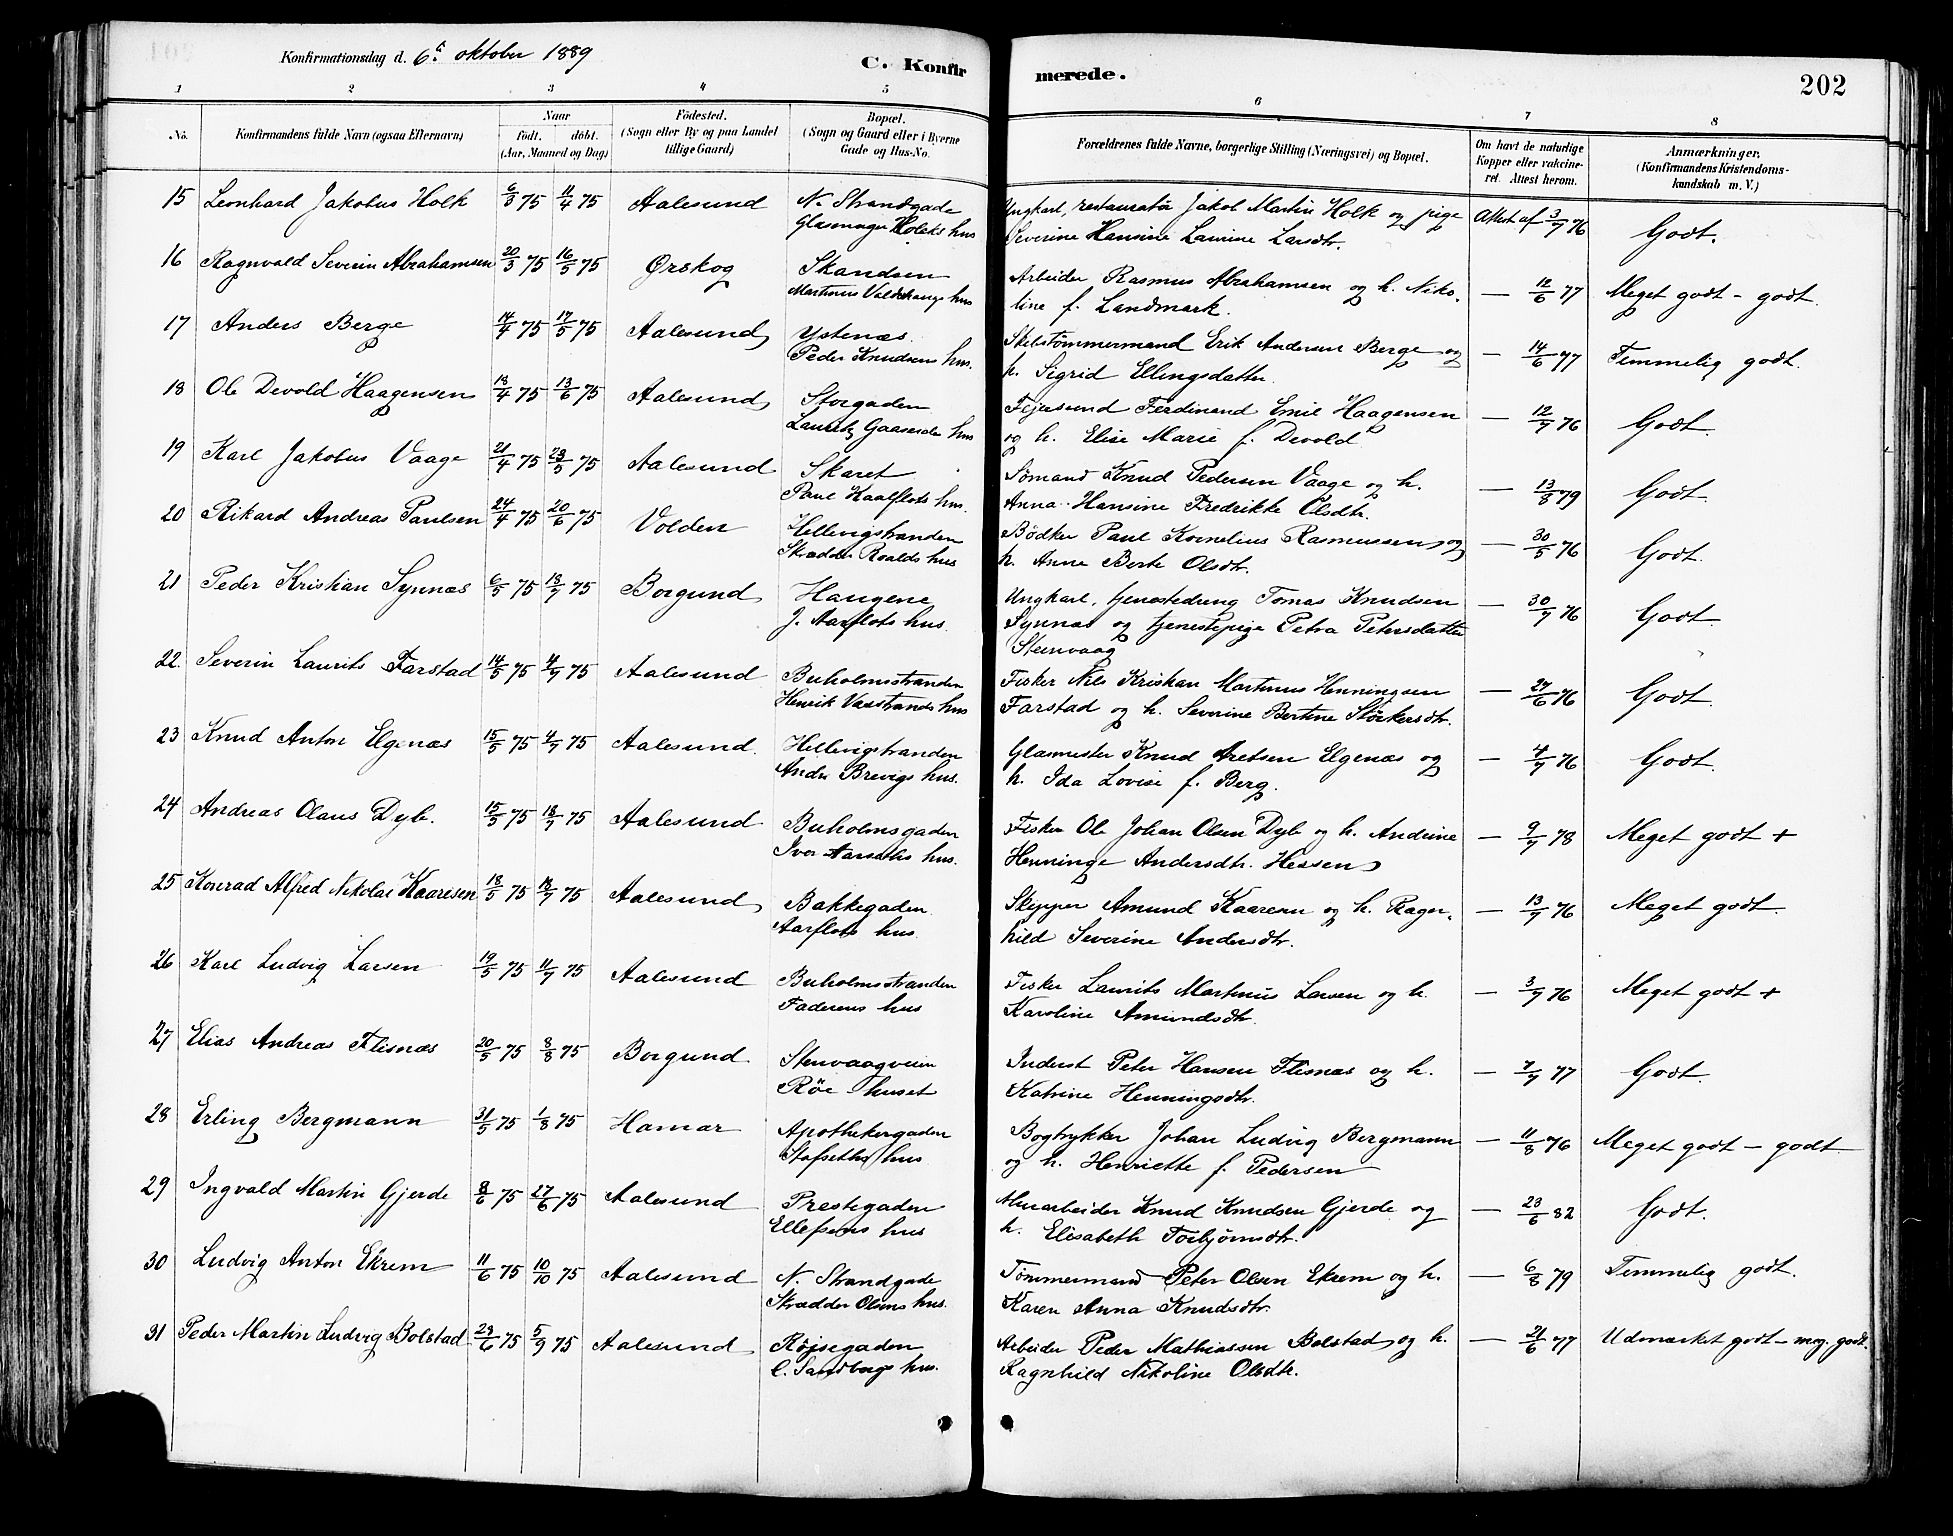 Konfirmationsdag d. 6te oktober 1889
C. Konfirmerede.
202
1 2 3 4 5 6 7 8
No. Konfirmandens fulde Navn (ogsaa Efternavn) Naar födt. döbt. (Aar, Maaned og Dag) Födested. (Sogn eller By og paa Landet tillige Gaard) Bopæl. (Sogn og Gaard eller i Byerne Gade og Hus-No. Forældrenes fulde Navne, borgerlige Stilling (Næringsvei) og Bopæl. Om havt de naturlige Kopper eller vakcineret. Attest herom. Anmærkninger. (Konfirmandens Kristendomskundskab m. V.)
15 Leonhard Jakobus Holk 6/3 75 11/4 75 Aalesund N. Strandgade
Glasmager Holcks hus
Ungkarl, restauratør Jakob Martin Holk og pige
Severine Hansine Laurine Larsdtr.
Attest af 3/7 76 Godt.
16 Ragnvald Severin Abrahamsen 20/3 75 16/5 75 Ørskog Skandsen
Martinus Valdehaugs hus
Arbeider Rasmus Abrahamsen og h. Niko-
line f. Landmark.
— 12/6 77 Meget godt - godt.
17 Anders Berge 14/4 75 17/5 75 Aalesund Ystenæs.
Peder Knudsens hus.
Skibstømmermand Erik Andersen Berge og
h. Sigrid Ellingsdatter.
— 14/6 77 Temmelig godt.
18 Ole Devold Haagensen 18/4 75 13/6 75 Aalesund Storgaden
Lauritz hus
Ferdinand Emil Haagensen
og h. Elise Marie f. Devold
— 12/7 76 Godt.
19 Karl Jakobus Vaage 21/4 75 23/5 75 Aalesund Skaret
Paul Kaalflots hus.
Sømand Knud Pedersen Vaage og h.
Anna Hansine Fredrikke Olsdtr.
— 13/8 79 Godt.
20 Rikard Andreas Paulsen 24/4 75 20/6 75 Volden Hellevigstranden
Skrædder Roalds hus
Bødker Paul Kornelius Rasmussen og
h. Anne Berte Olsdtr.
— 30/5 76 Godt.
21 Peder Kristian Synnæs 6/5 75 18/7 75 Borgund Haugene
J. Aarflots hus.
Ungkarl, tjenestedreng Tomas Knudsen
Synnæs og tjenestepige Petra Petersdatter
Steinvaag
— 30/7 76 Godt.
22. Severin Laurits Farstad 14/5 75 4/7 75 Aalesund Buholmsstranden
Henrik Vasstrands hus
Fisker Nils Kristian Martinus Henningsen
Farstad og h. Severine Bertine Størkersdtr.
— 27/6 76 Godt.
23 Knud Anton Elgenæs 15/5 75 4/7 75 Aalesund. Hellevigstranden
Andr. Brevigs hus.
Glasmester Knud Aretsen Elgenæs og
h. Ida Lovise f. Berg.
— 4/7 76 Godt.
24 Andreas Olaus Dyb. 15/5 75 18/7 75 Aalesund Buholmsgaden
Iver Aarseths hus.
Fisker Ole Johan Olsen Dyb og h. Andrine
Henninge Andersdtr. Hessen
— 9/7 78 Meget godt +
25 Konrad Alfred Nikolai Kaaresen 18/5 75 18/7 75 Aalesund Bakkegaden
Aarflots hus.
Skipper Amund Kaaresen og h. Ragn-
hild Severine Andersdtr.
— 13/7 76 Meget godt.
26 Karl Ludvig Larsen 19/5 75 11/7 75 Aalesund Buholmsstranden
Faderens hus
Fisker Laurits Martinus Larsen og h.
Karoline Amundsdtr.
— 3/7 76 Meget godt +
27 Elias Andreas Flisnæs 20/5 75 8/8 75 Borgund Stenvaagveien
Röe huset
Inderst Peter Hansen Flisnæs og h.
Katrine Henningsdtr.
— 7/7 77 Godt.
28 Erling Bergmann 31/5 75 1/8 75 Hamar Apothekergaden
Stafseths hus
Bogtrykker Johan Ludvig Bergmann
og h. Henriette f. Pedersen
— 11/8 76 Meget godt - godt
29 Ingvald Martin Gjerde 8/6 75 27/6 75 Aalesund Prestegaden
Ellefsens hus
Murarbeider Knud Knudsen Gjerde og
h. Elisabeth Torbjørnsdtr.
— 23/6 82 Godt.
30 Ludvig Anton Ekrem 11/6 75 10/10 75 Aalesund N. Strandgade
Skrædder Olsens hus.
Tømmermand Peter Olsen Ekrem og h.
Karen Anna Knudsdtr.
— 6/8 79 Temmelig godt.
31 Peder Martin Ludvig Bolstad 23/6 75 5/9 75 Aalesund Röjsegaden
C. Sandborgs hus.
Arbeider Peder Mathiassen Bolstad og h.
Ragnhild Nikoline Olsdtr.
— 21/6 77 Udmærket godt - meg. godt.